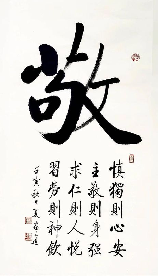 敬
慎獨則心安
主敬則身強
求仁則人悅
習勞則神欽